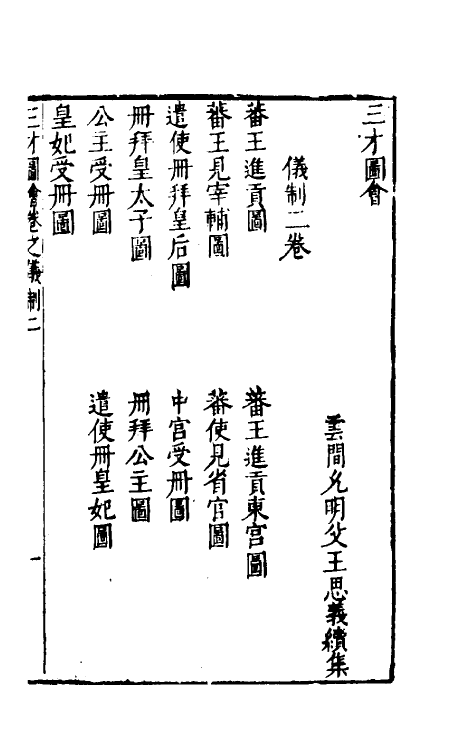 三才圖會
雲間允明父王思義續集
儀制二卷
蕃王進貢圖　蕃王進貢東宮圖
蕃王見宰輔圖　蕃使見省官圖
遣使冊拜皇后圖　中宮受冊圖
冊拜皇太子圖　冊拜公主圖
公主受冊圖　遣使冊皇妃圖
皇妃受冊圖
三才圖會卷之儀制二　一